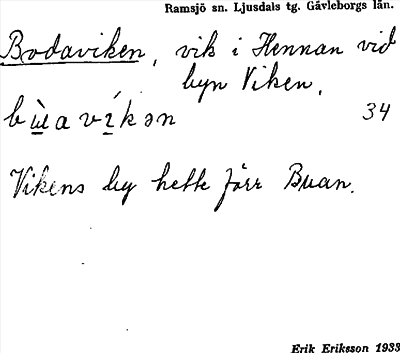 Ramsjö sn. Ljusdals tg. Gävleborgs län.
Bodaviken, vik i Hennan vid
byn Viken.
bù̲a ví̲kən 34
Vikens by hette förr Buan.
Erik Eriksson 1933